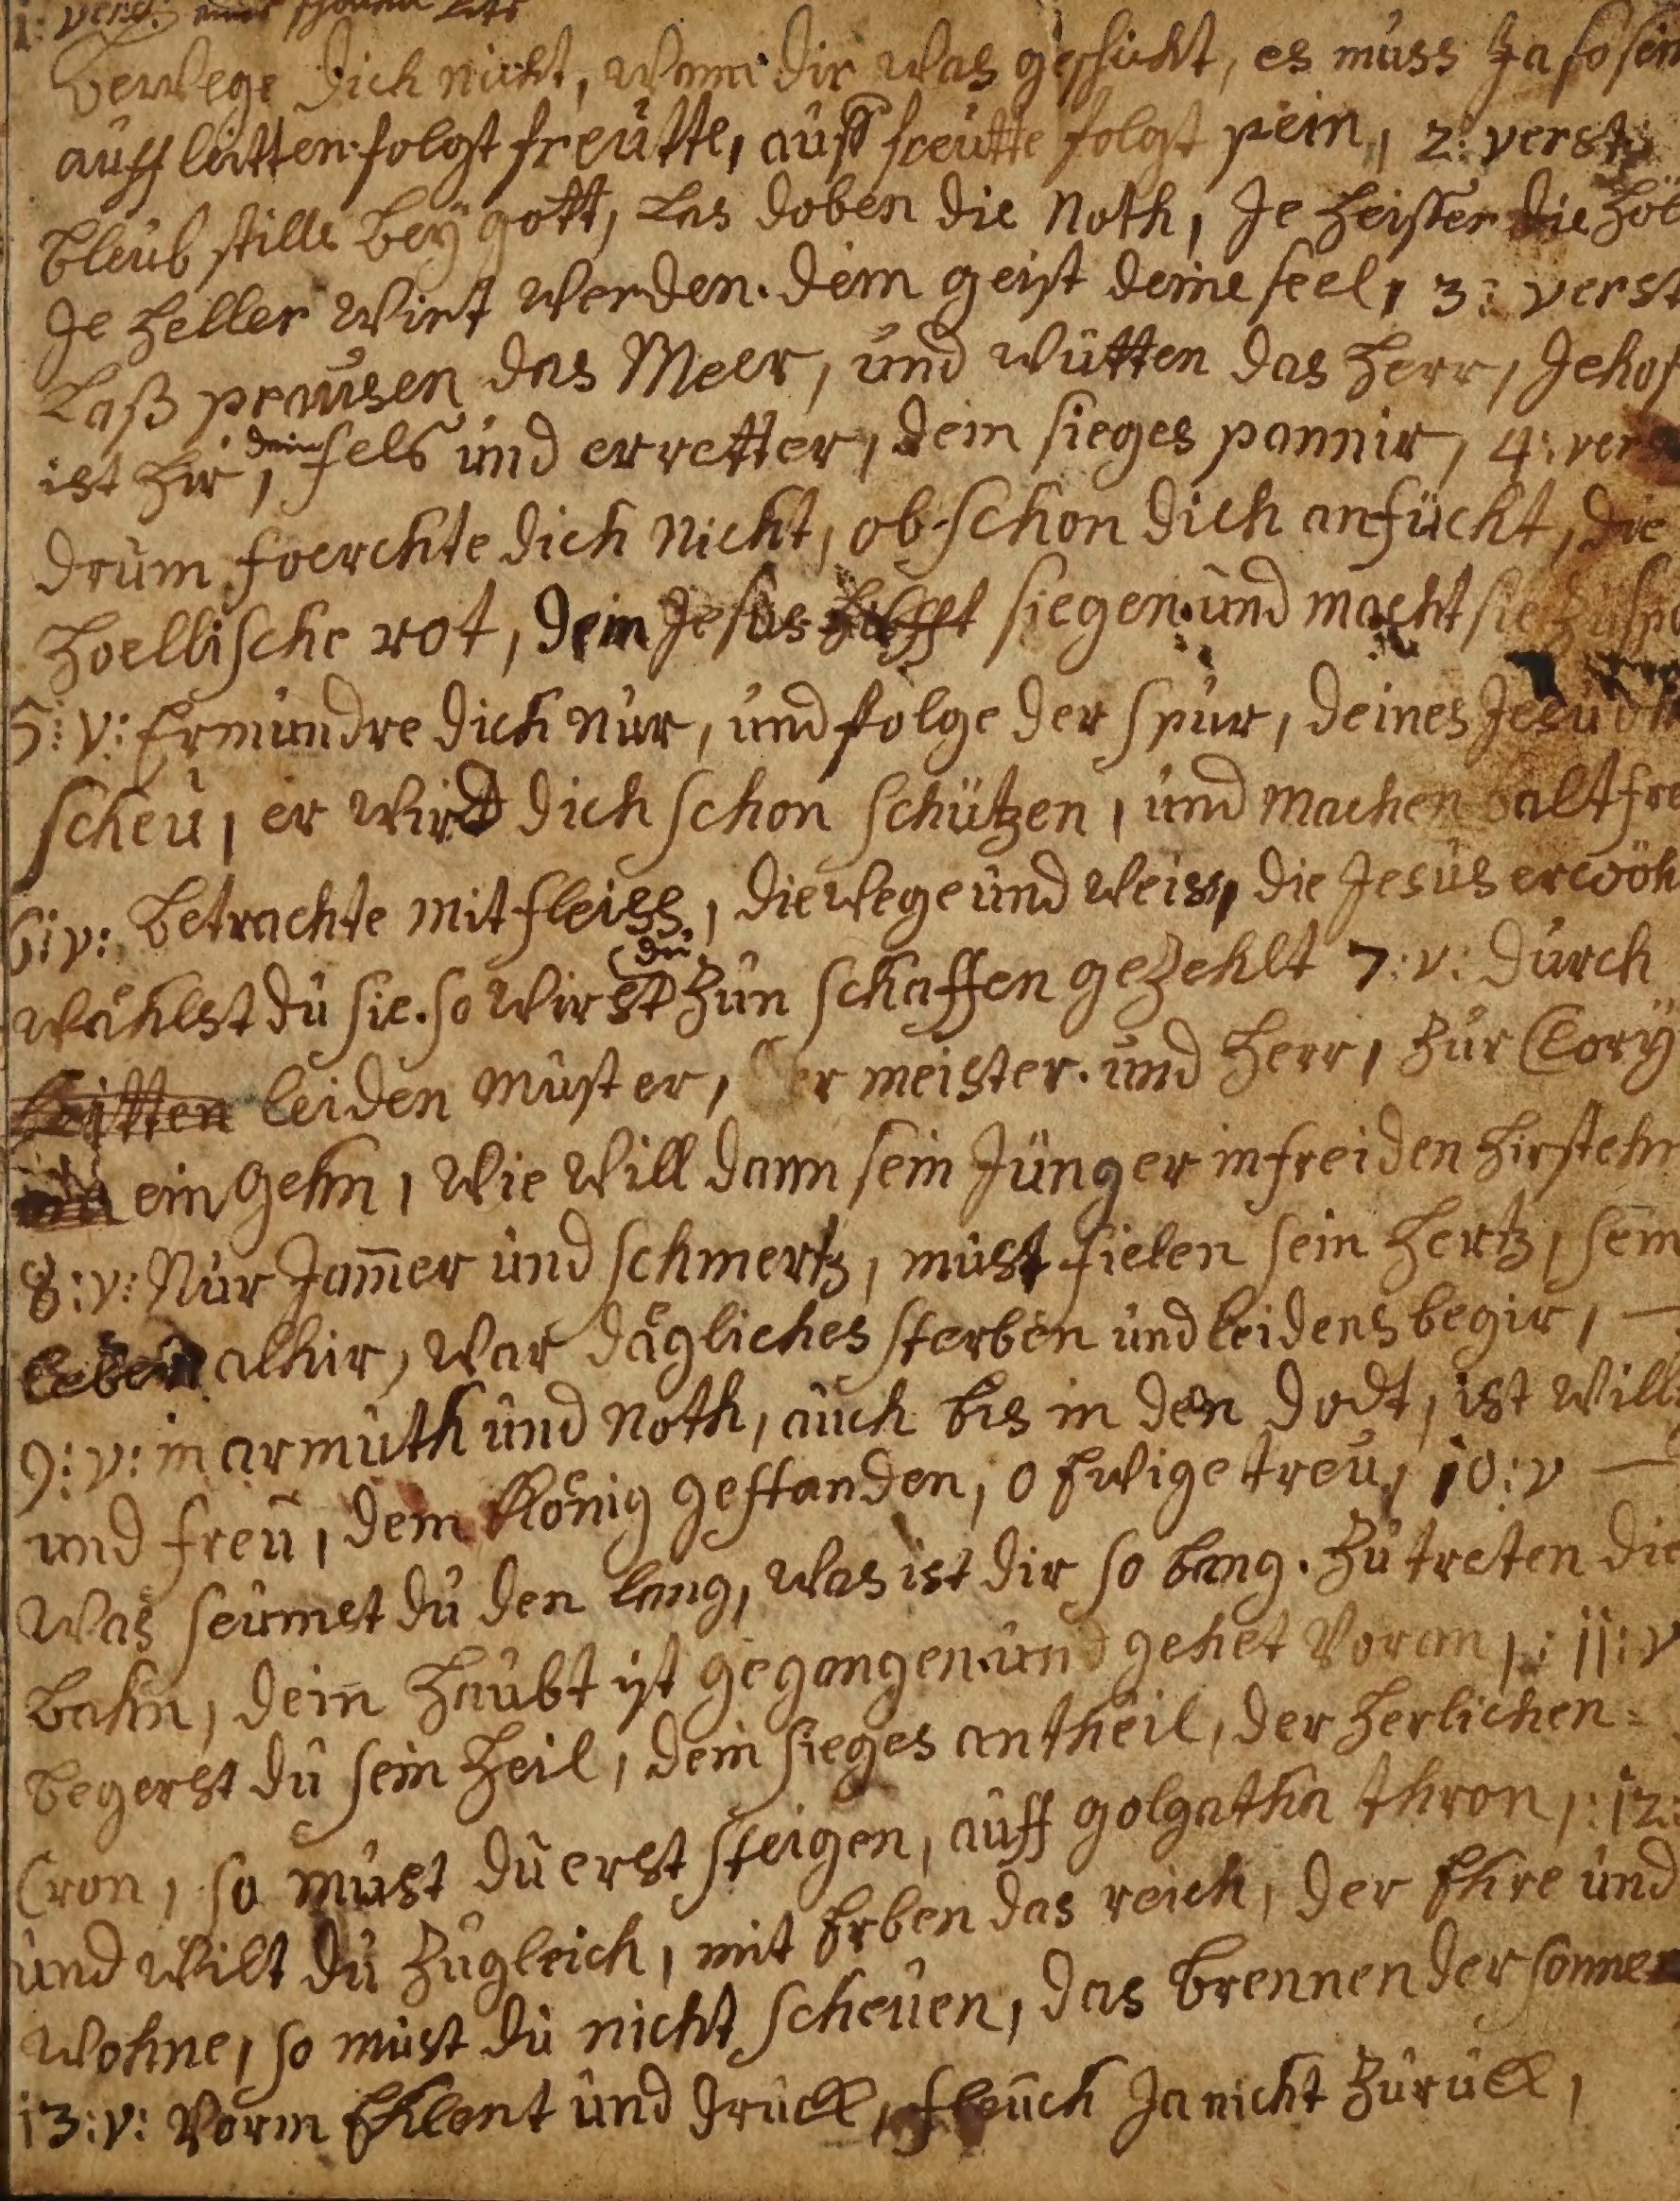 1: vers:
bewege dich nicht, wann dir was geschicht, es muss Ja so sein
auff leitten folgt freutte, auff freutte folgt pein, 2: verst
bleub stille bey gott, Las doben die Noth, Je heisser die höl
Je heller wirt werden. dem geist deine seel, 3: verst
Laß prausen das Meer, und wütten das herr, Jehof
ist hir, dein fels und erretter, dein sieges pannir, 4: vers
drum foerchte dich nicht, obschon dich anfücht, die
hoellische rot, dein Jesus hilfft siegen und macht sie zu sp
5: v: Ermundre dich nur, und folge der spur, deines Jesu oh
scheu, er wird dich schon schützen, und machen balt fre
6: v: betrachte mit fleiss, die wege und weiss, die Jesus erwöh
wählst du sie. so wirst du zun schaffen gezehlt 7: v: durch
leitten leiden must er, der meister. und herr, zur Glory
ein gehn, wie will dann sein Jünger in freiden hir stehn
8: v: Nur Jam̅er und schmertz, must fielen sein hertz, sein
leben alhir, war dägliches sterben und leidens begir, —
9: v: in armuth und Noth, auch bis in den dodt, ist will
und freu, dem König gestanden, o Ewige treu, 10: v —
was seumst du den lang, was ist dir so bang. zu treten die
bahn, dein haubt ist gegangen. und gehet voran,: 11: v
begerst du sein heil, dein sieges antheil, der herlichen=
Cron, so must du erst steigen, auff golgatha thron,: 12:
und wilt du zugleich, mit Erben das reich, der Ehre und
wohne, so must du nicht scheuen, das brennen der sonne
13: v: vorm Ehlent und druck, fleuch Ja nicht zurück,